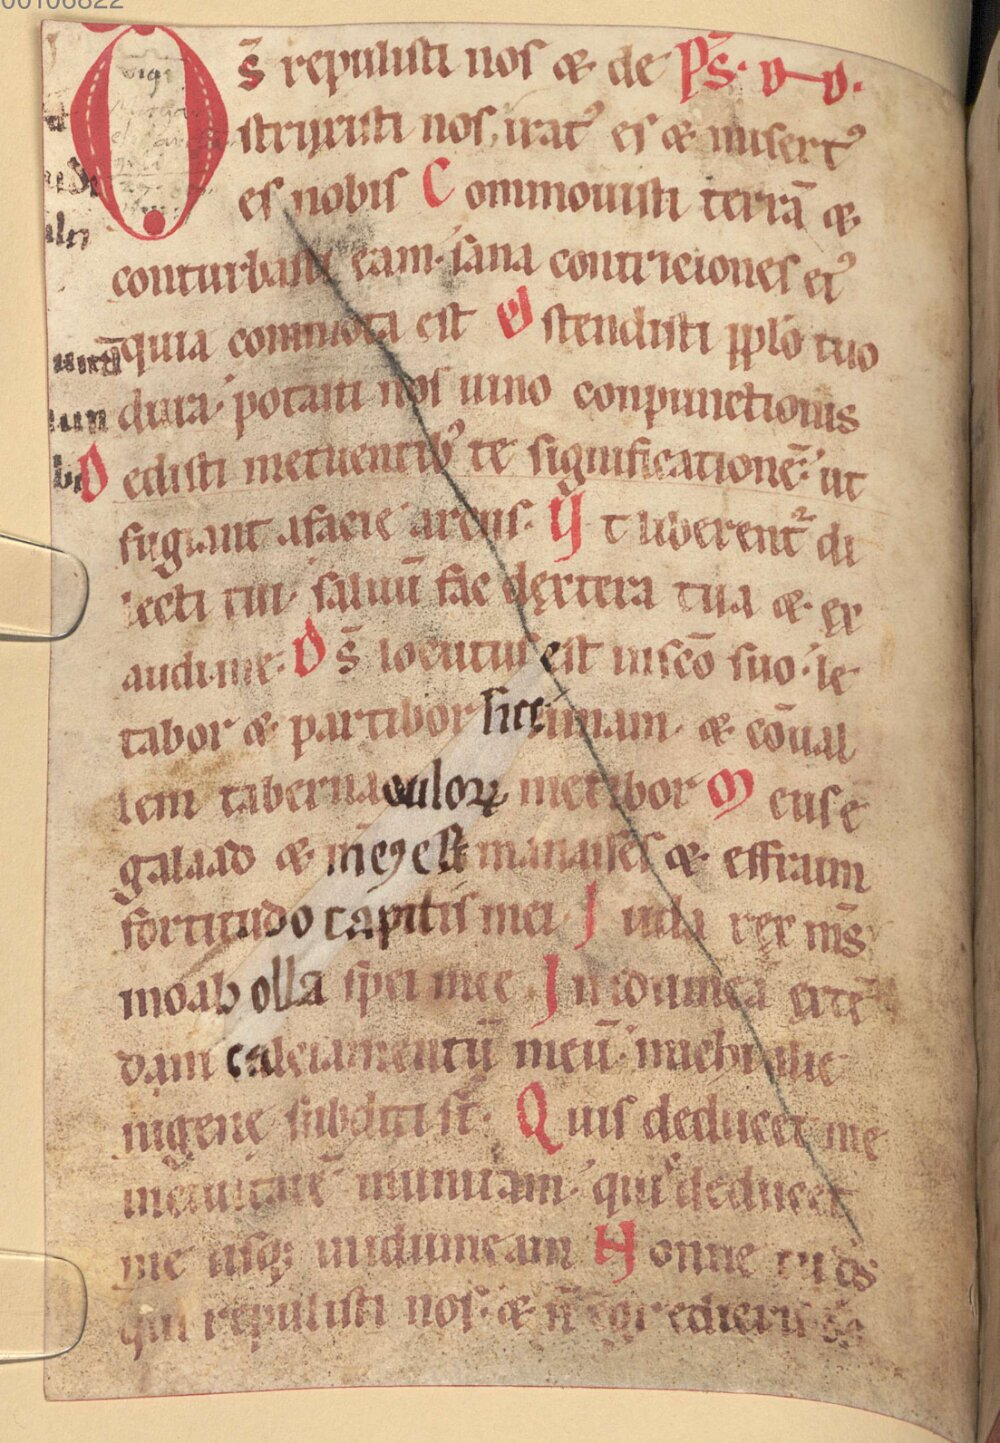 00106822
Os̄ repulisti nos & de Ps̄. D D.
struxisti nos, iratꝰ es & misertꝰ
es nobis Commouisti terrā &
conturbasti eam. sana contriciones eiꝰ
quia commota est Ostendisti pplo tuo
dura. potasti nos uino conpunctionis
Dedisti metuentibꝰ te significationē. ut
fugiant afacie arcus. Ut liberent di
lecti tui. saluū fac dextera tua & ex
audi me. Ds̄ locutus est in sco suo. le
tabor & partibor siccimam. & cōual
lem tabernaculoꝝ metibor Meus ē
galaad & meꝰ est manasses & effraim
fortitudo capitis mei Iuda rex ms̄
moab olla spei mee In idumea extē
dam calciamentū meū. michi alie
nigenę subditi st̄. Quis deducet me
inciuitatē munitam. quis deducet
me usqꝫ inidumeam Nonne tu ds̄
qui repulisti nos. & n̄ egredieris ds̄